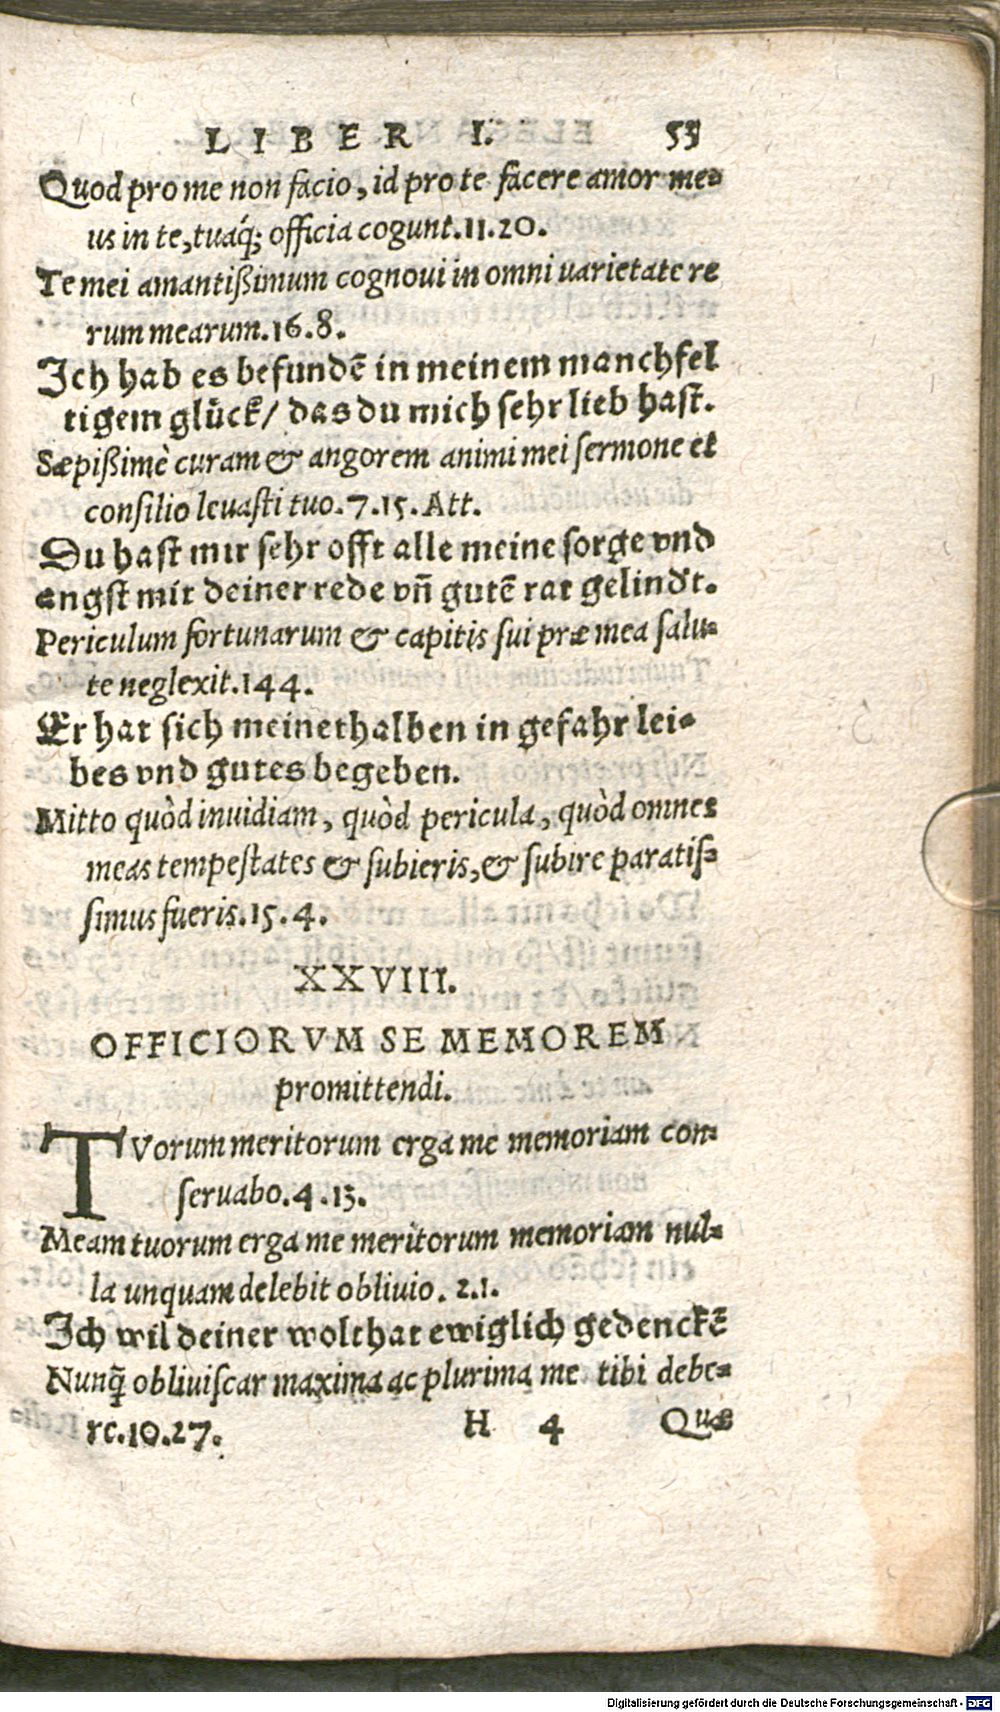 LIBER I. 53
Quod pro me non facio, id pro te facere amor me-
us in te, tuaq́; officia cogunt. 11. 20.
Te mei amantißimum cognovi in omni varietate re
rum mearum. 16. 8.
Ich hab es befundē in meinem manchfel
tigem glück/ das du mich sehr lieb hast.
Sæpißimè curam & angorem animi mei sermone et
consilio levasti tuo. 7. 15. Att.
Du hast mir sehr offt alle meine sorge vnd
angst mit deiner rede vñ gutē rat gelindt.
Periculum fortunarum & capitis sui præ mea salu-
te neglexit. 144.
Er hat sich meinethalben in gefahr lei-
bes vnd gutes begeben.
Mitto quòd invidiam, quòd pericula, quòd omnes
meas tempestates & subieris, & subire paratis-
simus fueris. 15. 4.
XXVIII.
OFFICIORVM SE MEMOREM
promittendi.
TVorum meritorum erga me memoriam con-
servabo. 4. 13.
Meam tuorum erga me meritorum memoriam nul-
la unquam delebit oblivio. 2. 1.
Ich wil deiner wolthat ewiglich gedenckē
Nunq̃ obliviscar maxima ac plurima me tibi debe-
re. 10. 27. H 4 Quæ
Digitalisierung gefördert durch die Deutsche Forschungsgemeinschaft - DFG